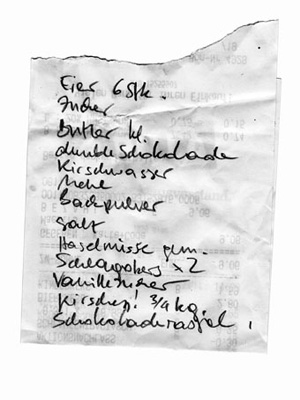 Eier 6 Stk.
Zucker
Butter kl.
dunkle Schokolade
Kirschwasser
Mehl
Backpulver
Salz
Haselnüsse gem.
Schlagobers x 2
Vanillezucker
Kirschen! 3/4 kg
Schokoladeraspel